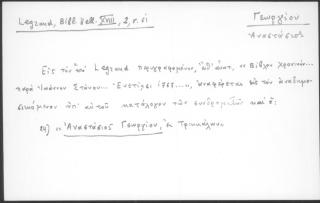 Legrand, Bibl. hell. XVIII, 2, σ. 61
Γεωργίου
Ἀναστάσιος
Εἰς τὸν ὑπὸ Legrand περιγραφόμενον, ὑπ' ἀριθ. « Βίβλος Χρονική...
παρὰ Ἰωάννου Στάνου... Ἐνετίῃσι 1767...», ἀναφέρεται εἰς τὸν
ὑπ' αὐτοῦ κατάλογον τῶν συνδρομητῶν καὶ ὁ:
« Ἀναστάσιος Γεωργίου, ἐκ Τρικκάλων»